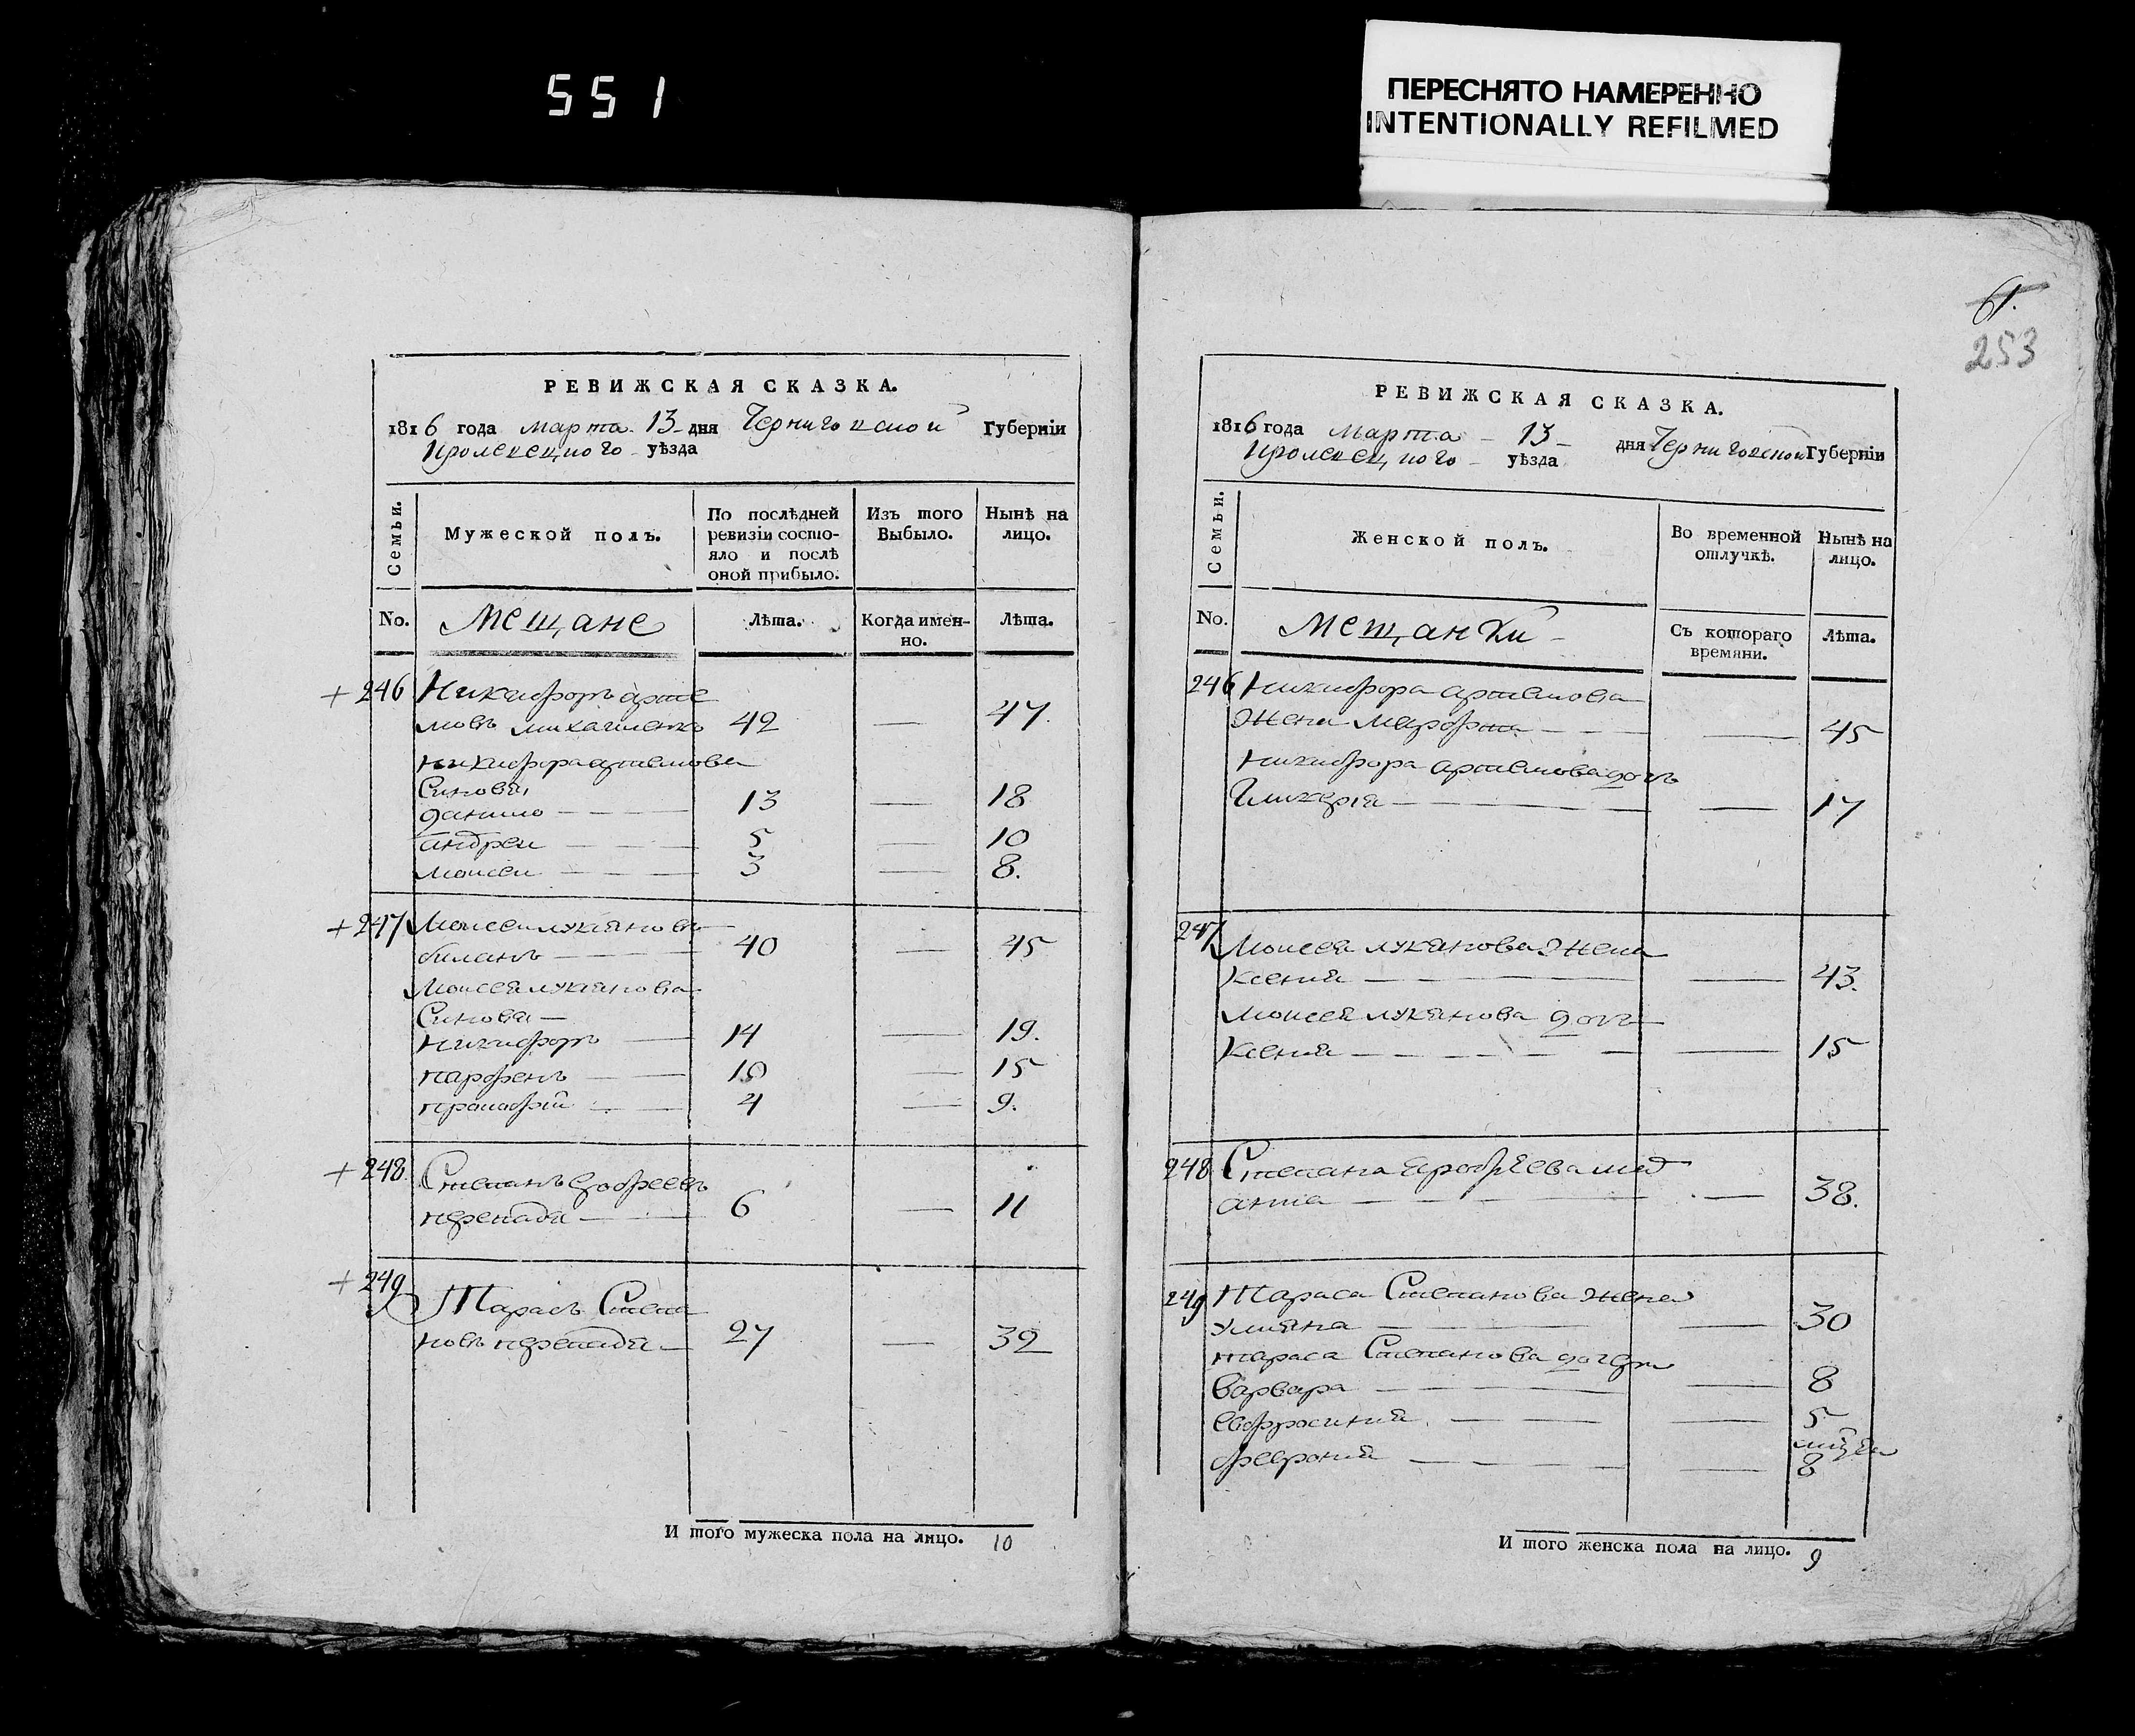 551
ПЕРЕСНЯТО НАМЕРЕННО
INTENTIONALLY REFILMED
РЕВИЖСКАЯ СКАЗКА.
1816 года марта 13 дня Черниговской Губернїи
Кролевецкого уѣзда
Семьи.
Мужеской полъ.
По послѣдней
ревизїи состо-
яло и послѣ
оной прибыло.
Изъ того
Выбыло.
Нынѣ на
лицо.
No.
Мещане
Лѣта.
Когда имен-
но.
Лѣта.
+ 246 Никифоръ арте
мовъ михайленко 42 — 47
никифора артемова
Синовя
данило — 13 — 18
андреи — 5 — 10
моисеи — 3 — 8.
+ 247 Моисеи лукяновъ
биланъ — 40 — 45
Моисея лукянова
Синовя —
никифоръ — 14 — 19.
парфенъ — 10 — 15
— 4 — 9.
+ 248. Степанъ
перепада — 6 — 11
+ 249 Тарасъ Степа
новъ перепада — 27 — 32
И того мужеска пола на лицо. 10
61.
253
РЕВИЖСКАЯ СКАЗКА.
1816 года марта 13 дня Черниговской Губернїи
Кролевецкого уѣзда
Семьи.
Женской полъ.
Во временной
отлучкѣ.
Нынѣ на
лицо.
No.
Мещанки
Съ котораго
времяни.
Лѣта.
246 Никифора артемова
Жена Марфа — — 45
никифора артемова дочъ
Гликерїя — — 17
247 Моисея лукянова Жена
Ксения — — 43.
Моисея лукянова дочъ
Ксения — — 15
248 Степана
— — 38.
249 Тараса Степанова жена
улияна — — 30
тараса Степанова дочери
варвара — — 8
евфросиния — — 5
феврония — — 8
И того женска пола на лицо. 9